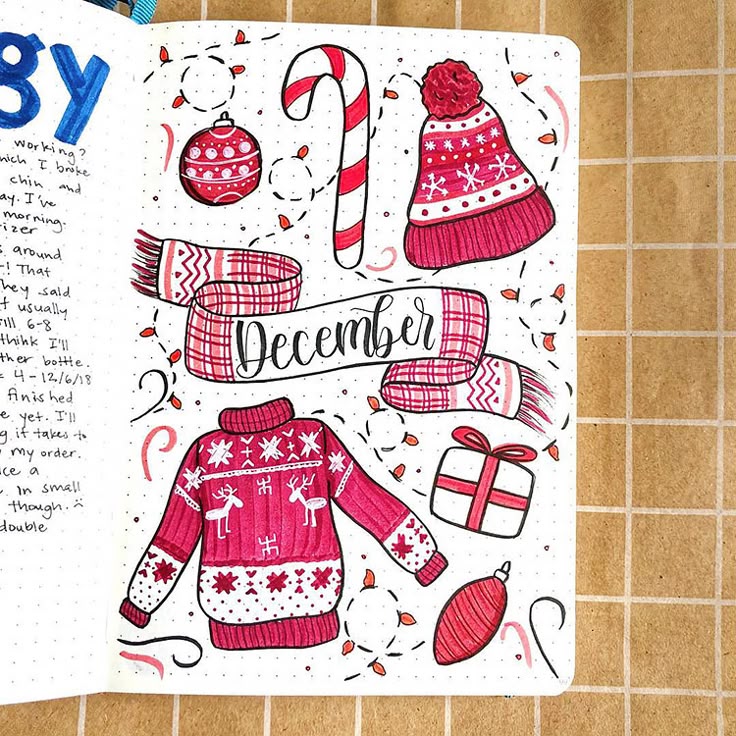 gy
working?
which I broke
chin and
ay. I've
morning.
rizer
s around
! That
they said
t usually
ill 6-8
think I'll
ther bottle.
= 4-12/6/18
finished
e yet. I'll
g. it takes to
my order.
ice a
. In small
though.
double
December